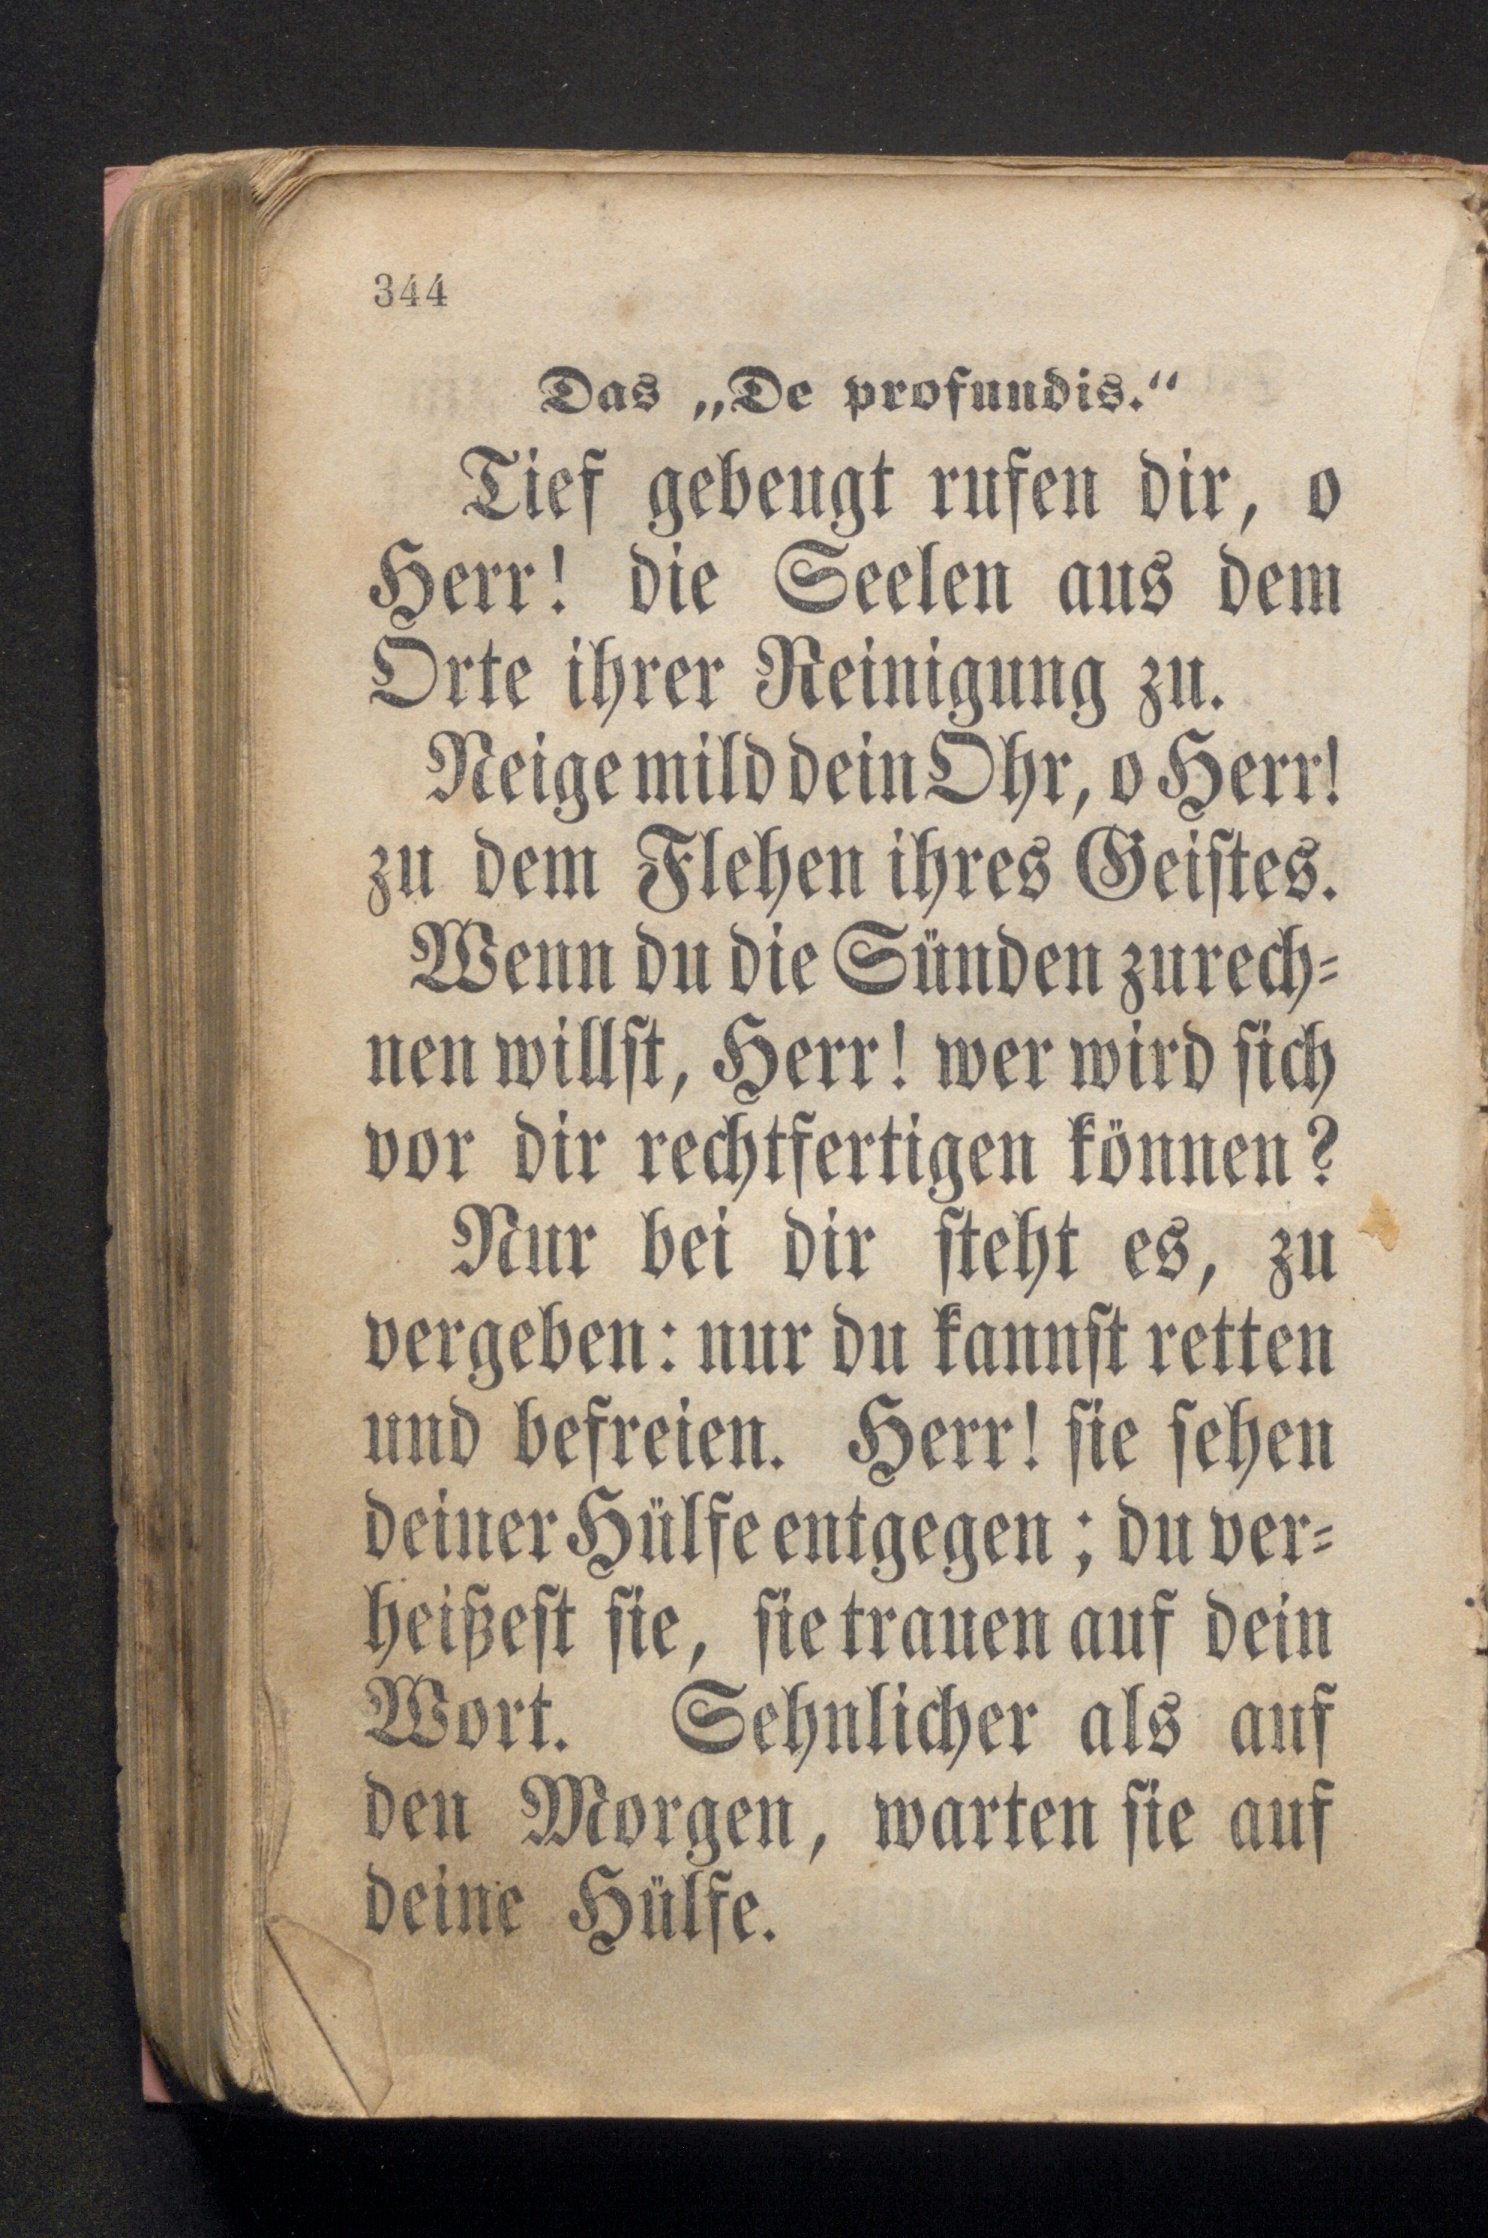 344
Das „De profundis.“
Tief gebeugt rufen dir, o
Herr! die Seelen aus dem
Orte ihrer Reinigung zu.
Neige mild dein Ohr, o Herr!
zu dem Flehen ihres Geistes.
Wenn du die Sünden zurech-
nen willst, Herr! wer wird sich
vor dir rechtfertigen können?
Nur bei dir steht es, zu
vergeben: nur du kannst retten
und befreien. Herr! sie sehen
deiner Hülfe entgegen; du ver-
heißest sie, sie trauen auf dein
Wort. Sehnlicher als auf
den Morgen, warten sie auf
deine Hülfe.